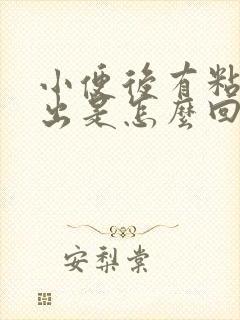 小便後有粘
出是怎麼回
安梨棠